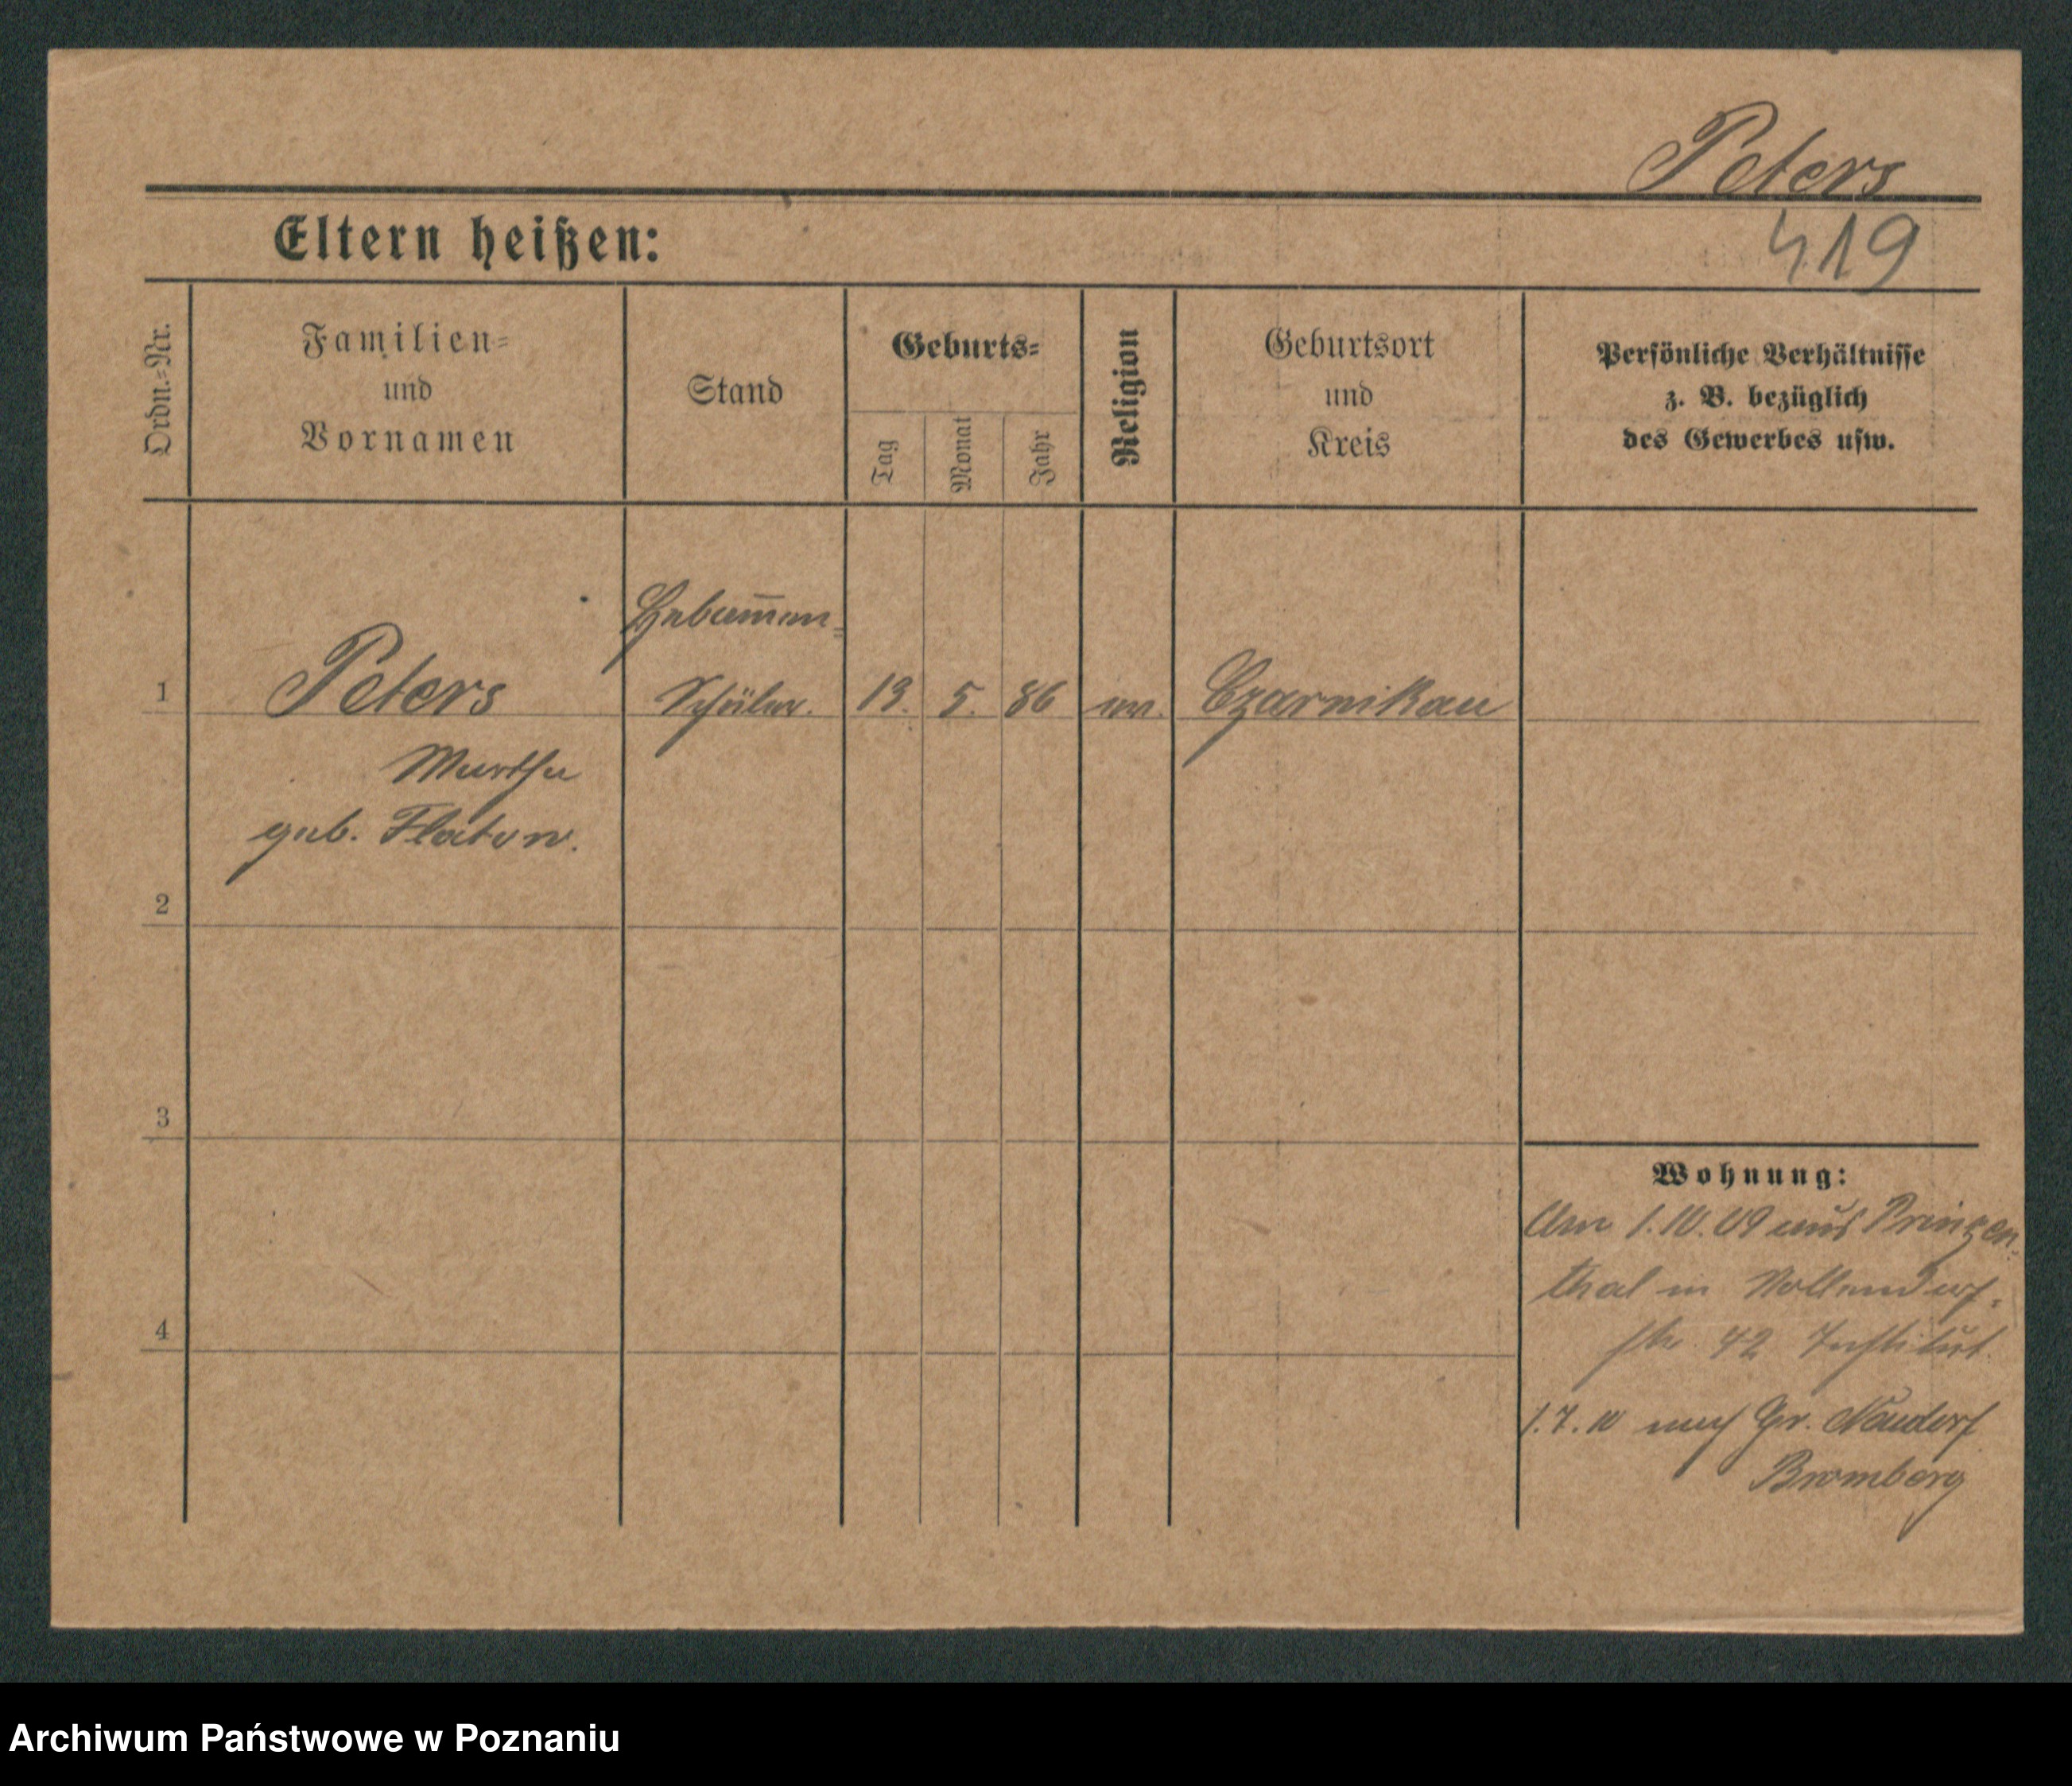 Peters
419
Eltern heißen:
Ordn.-Nr.
Familien-
und
Vornamen
Stand
Geburts-
Tag
Monat
Jahr
Religion
Geburtsort
und
Kreis
Persönliche Verhältnisse
z. B. bezüglich
des Gewerbes usw.
Hebam̅en-
1 Peters Schüler. 13. 5. 86 ev. Czarnikau
Martha
geb. Flatow.
2
3
4
Wohnung:
Am 1.10.09 aus Prinzen-
thal in Nollendorf-
str. 42 Institut.
1.7.10 nach Gr. Neudorf
Bromberg
Archiwum Państwowe w Poznaniu